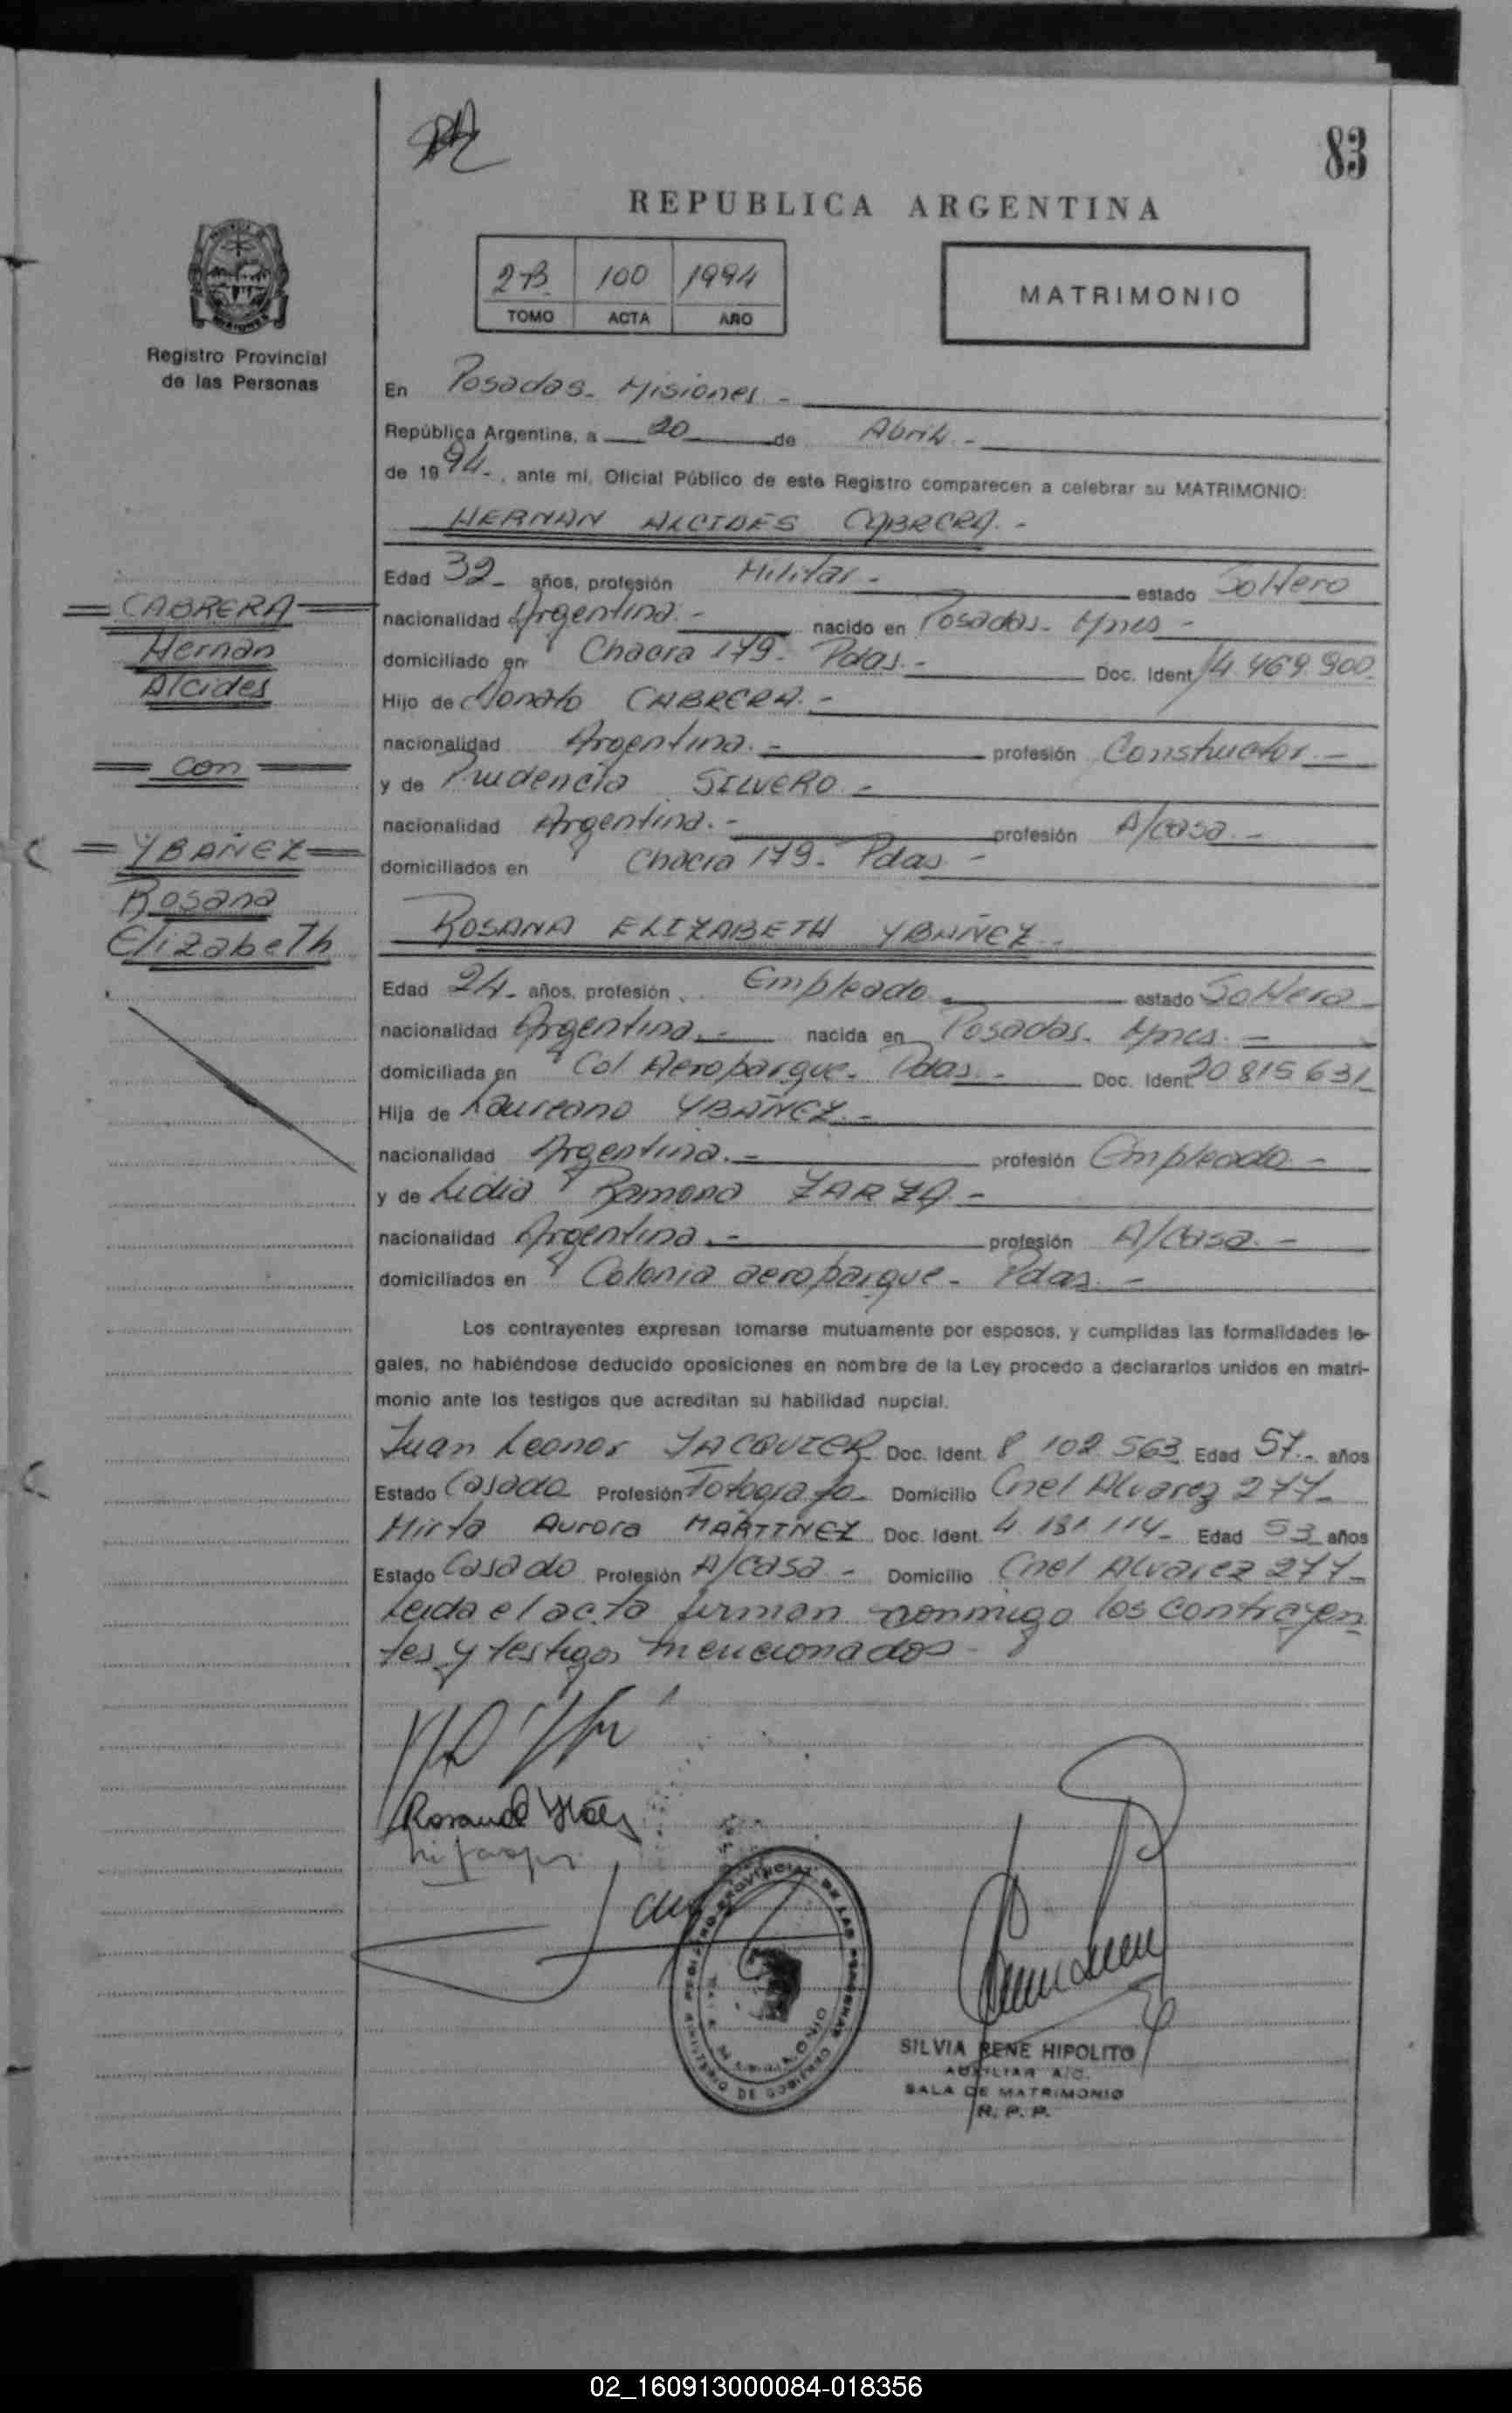 83
REPUBLICA ARGENTINA
2-B 100 1994
TOMO ACTA AÑO
MATRIMONIO
Registro Provincial
de las Personas
En Posadas - Misiones -
República Argentina, a 20 de Abril -
de 1994 -, ante mí, Oficial Público de este Registro comparecen a celebrar su MATRIMONIO:
HERNAN ALCIDES CABRERA. -
Edad 32 - años, profesión Militar - estado Soltero
nacionalidad Argentina. - nacido en Posadas - Mnes -
domiciliado en Chacra 179 - Pdas. - Doc. Ident. 14.469.900
Hijo de Donato CABRERA. -
nacionalidad Argentina. - profesión Constructor. -
y de Prudencia SILVERO -
nacionalidad Argentina. - profesión A/casa. -
domiciliados en Chacra 179 - Pdas -
CABRERA
Hernan
Alcides
con
YBAÑEZ
Rosana
Elizabeth
ROSANA ELIZABETH YBAÑEZ -
Edad 24 - años, profesión Empleado - estado Soltera
nacionalidad Argentina. - nacida en Posadas - Mnes. -
domiciliada en Col Aeroparque - Pdas. - Doc. Ident. 20 815 631
Hija de Laureano YBAÑEZ. -
nacionalidad Argentina. - profesión Empleado -
y de Lidia Ramona ZARZA -
nacionalidad Argentina. - profesión A/casa. -
domiciliados en Colonia aeroparque - Pdas. -
Los contrayentes expresan tomarse mutuamente por esposos, y cumplidas las formalidades le-
gales, no habiéndose deducido oposiciones en nombre de la Ley procedo a declararlos unidos en matri-
monio ante los testigos que acreditan su habilidad nupcial.
Juan Leonor JACQUIER Doc. Ident. 8 102 563 Edad 57 - años
Estado Casado Profesión Fotografo - Domicilio Cnel Alvarez 277 -
Mirta Aurora MARTINEZ Doc. Ident. 4 181 114 - Edad 53 años
Estado Casado Profesión A/casa - Domicilio Cnel Alvarez 277 -
Leida el acta firman conmigo los contrayen
tes y testigos mencionados -
REGISTRO PROVINCIAL DE LAS PERSONAS
MINISTERIO DE GOBIERNO
SILVIA RENE HIPOLITO
AUXILIAR A/C.
SALA DE MATRIMONIO
R. P. P.
02_160913000084-018356